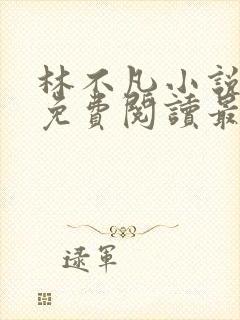 林不凡小説
免費閱讀最
逯軍